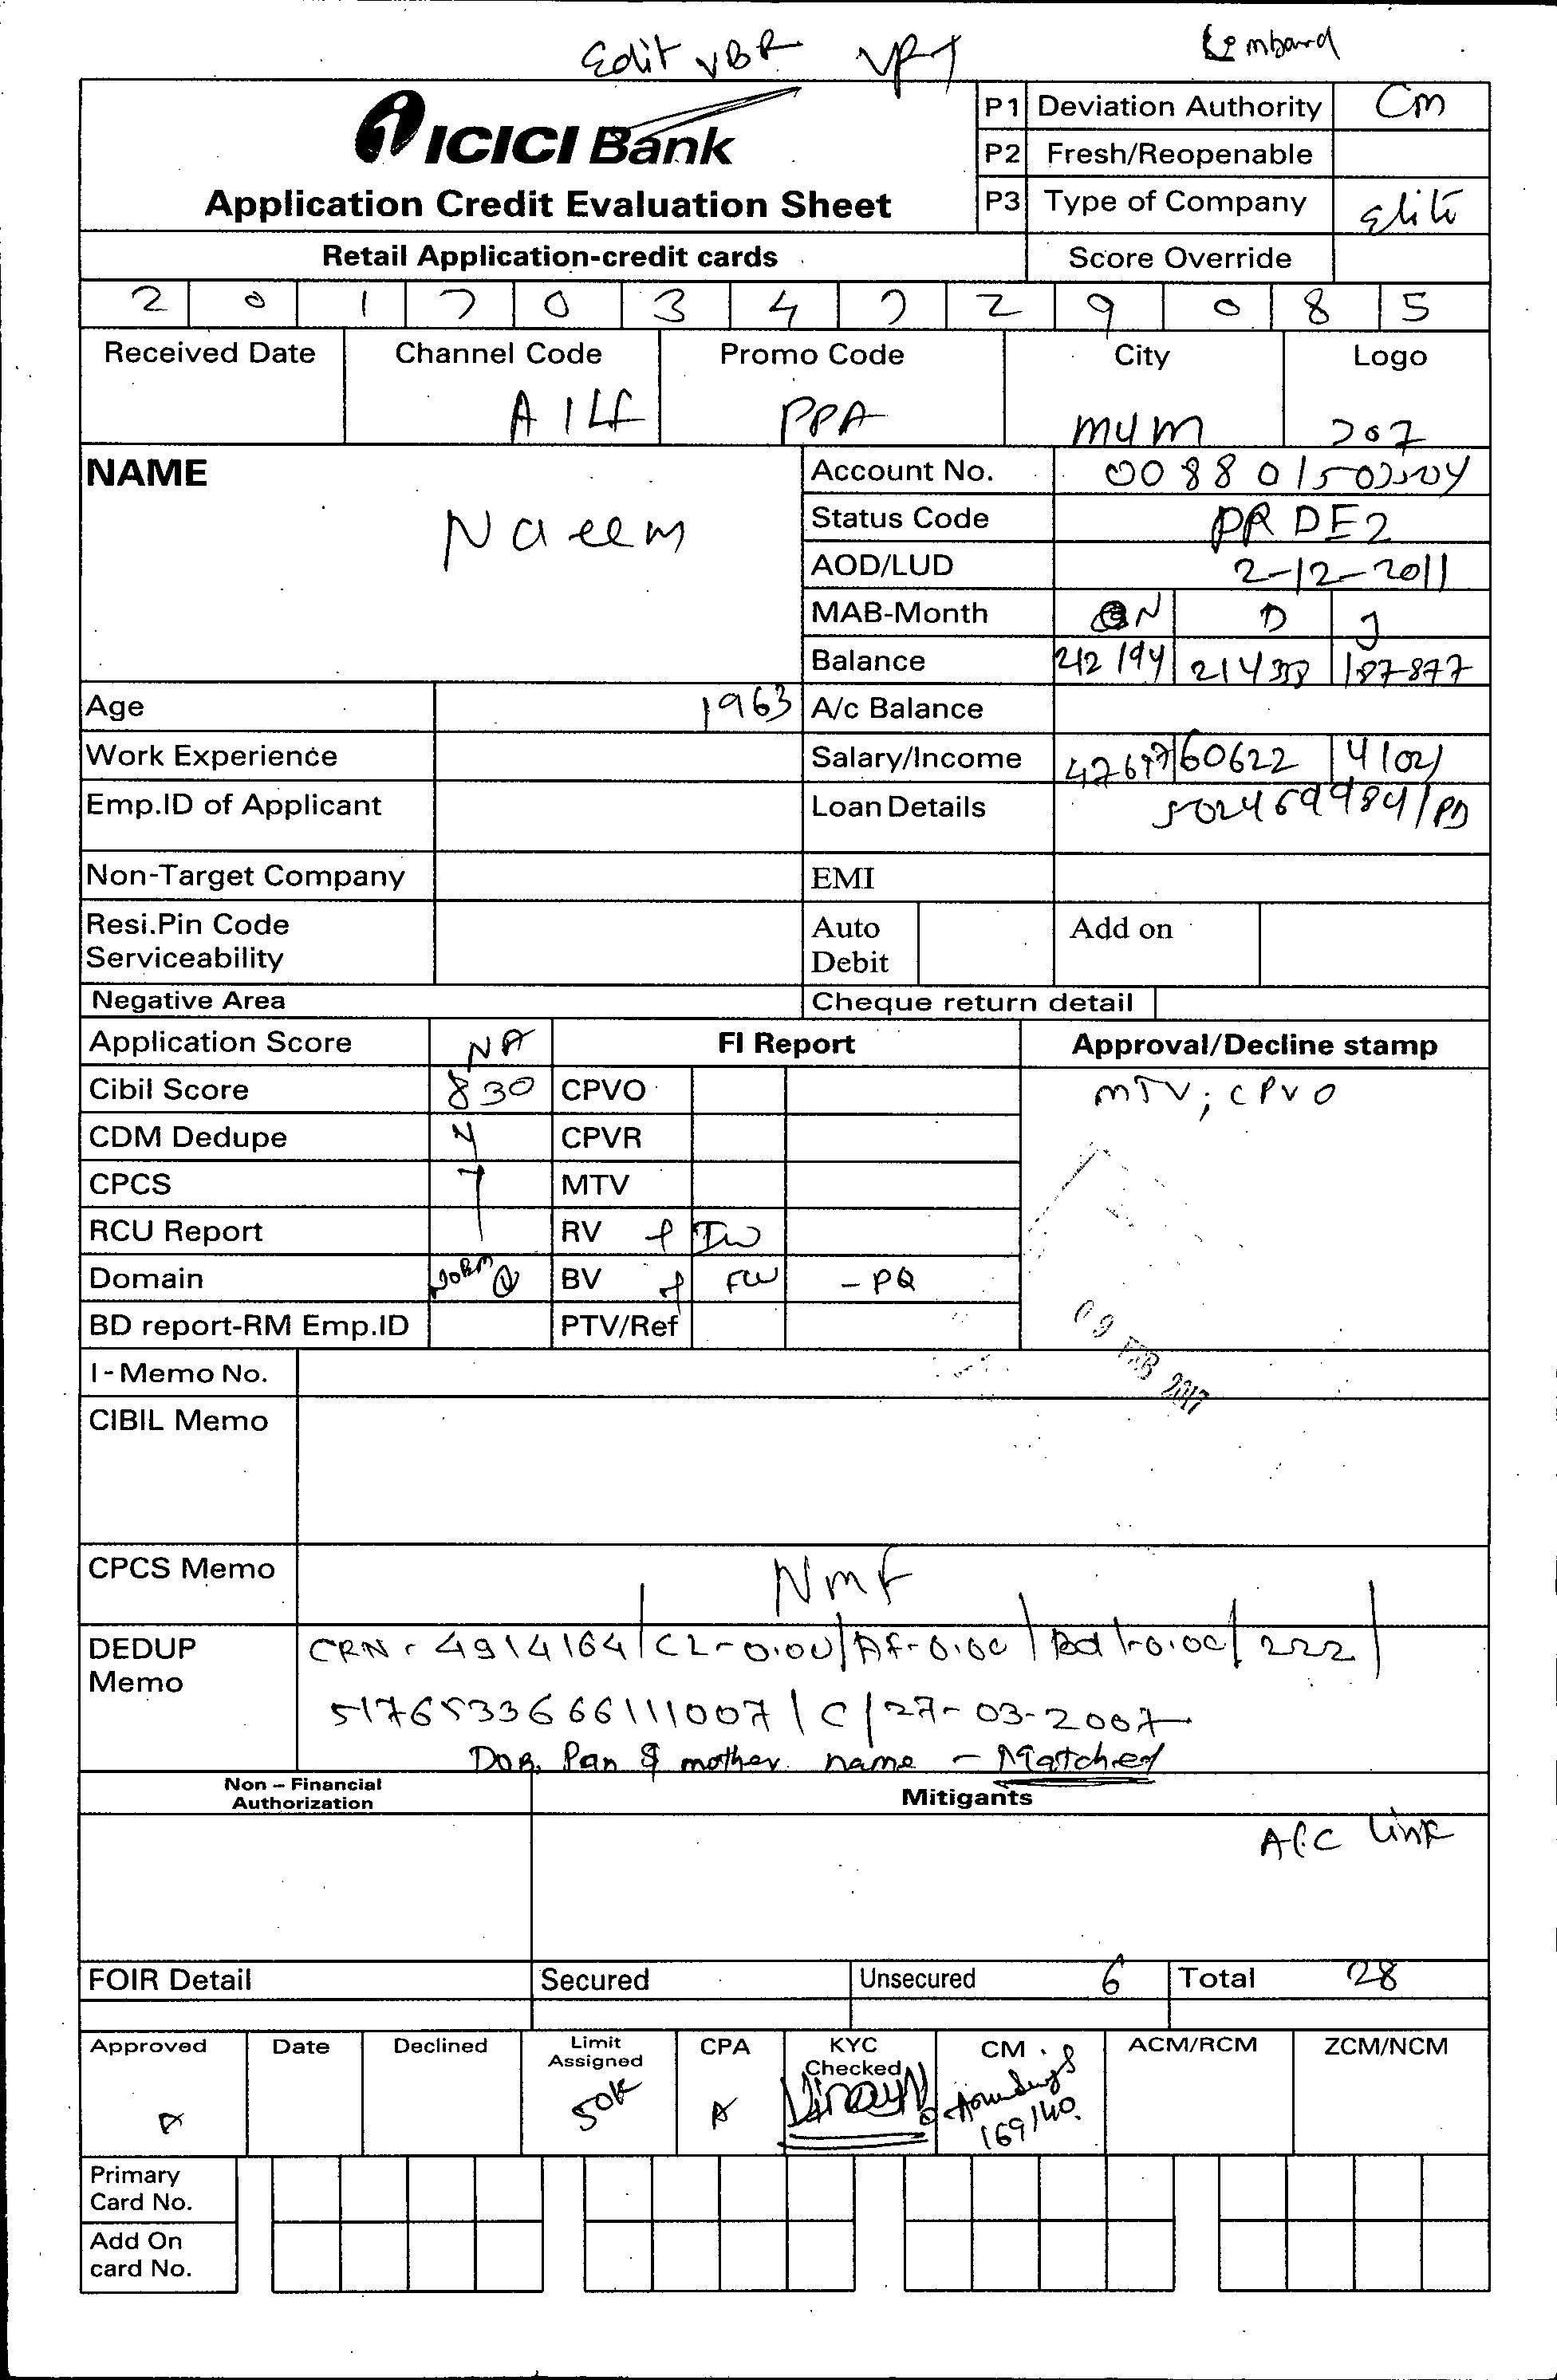 Edit VBR VRT Lombard
ICICI Bank
Application Credit Evaluation Sheet
P1 Deviation Authority CM
P2 Fresh/Reopenable
P3 Type of Company Elite
Retail Application-credit cards Score Override
2 0 1 7 0 3 4 7 2 9 0 8 5
Received Date Channel Code Promo Code City Logo
A1LF PPA MUM 207
NAME Naeem
Account No.
Status Code PRDE2
AOD/LUD 2-12-2011
MAB-Month N D J
Balance 212194 187877
Age 1963 A/c Balance
Work Experience Salary/Income 60622
Emp.ID of Applicant Loan Details 502469984/PD
Non-Target Company EMI
Resi.Pin Code Serviceability Auto Debit Add on
Negative Area Cheque return detail
Application Score NA FI Report Approval/Decline stamp
Cibil Score 830 CPVO MTV; CPVO
CDM Dedupe CPVR
CPCS MTV
RCU Report RV IW
Domain BV FW - PQ
BD report-RM Emp.ID PTV/Ref
09 FEB 2017
I - Memo No.
CIBIL Memo
CPCS Memo NMF
DEDUP Memo CRN - 4914164/CL-0.00/AF-0.00/Bal-0.00/222/
5176533666111007/C/27-03-2007
DOB, Pan & mother name - Matched
Non – Financial Authorization Mitigants
A/C Link
FOIR Detail Secured Unsecured 6 Total 28
Approved Date Declined Limit Assigned CPA KYC Checked CM ACM/RCM ZCM/NCM
A 50K A Vinay N. 169140.
Primary Card No.
Add On card No.